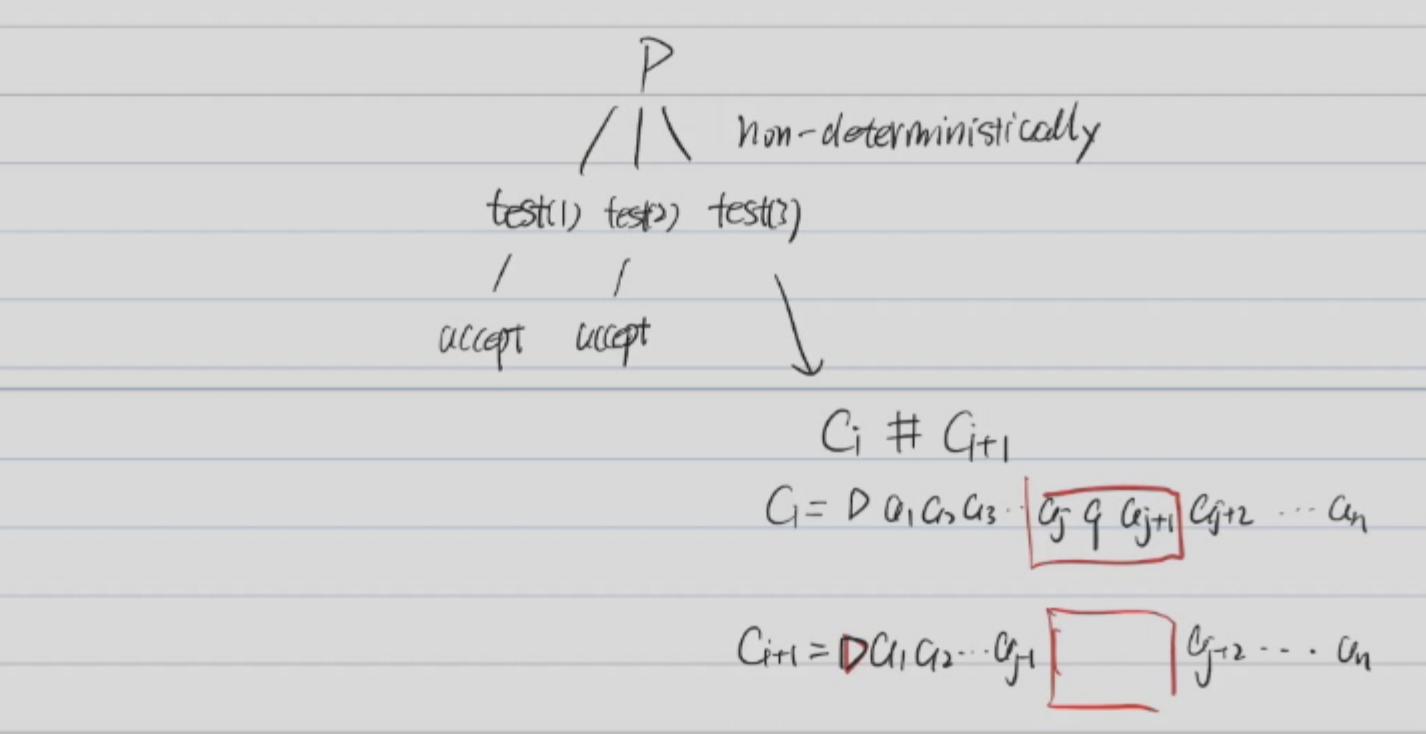 P
non-deterministically
test(1) test(2) test(3)
accept accept
Ci # Ci+1
Ci = D a1 a2 a3 .. aj q aj+1 aj+2 ... an
Ci+1 = D a1 a2 ... aj-1 aj+2 .... an